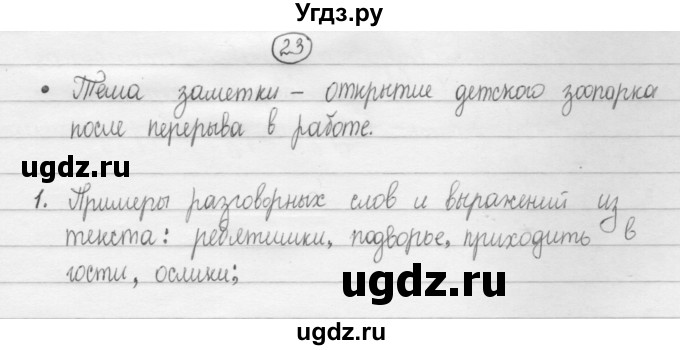 Угдз.ру
23
• Тема заметки – открытие детского зоопарка
после перерыва в работе.
ugdz.ru
ugdz.ru
1. Примеры разговорных слов и выражений из
текста: ребятишки, подворье, приходить в
гости, ослики;
ugdz.ru
ugdz.ru